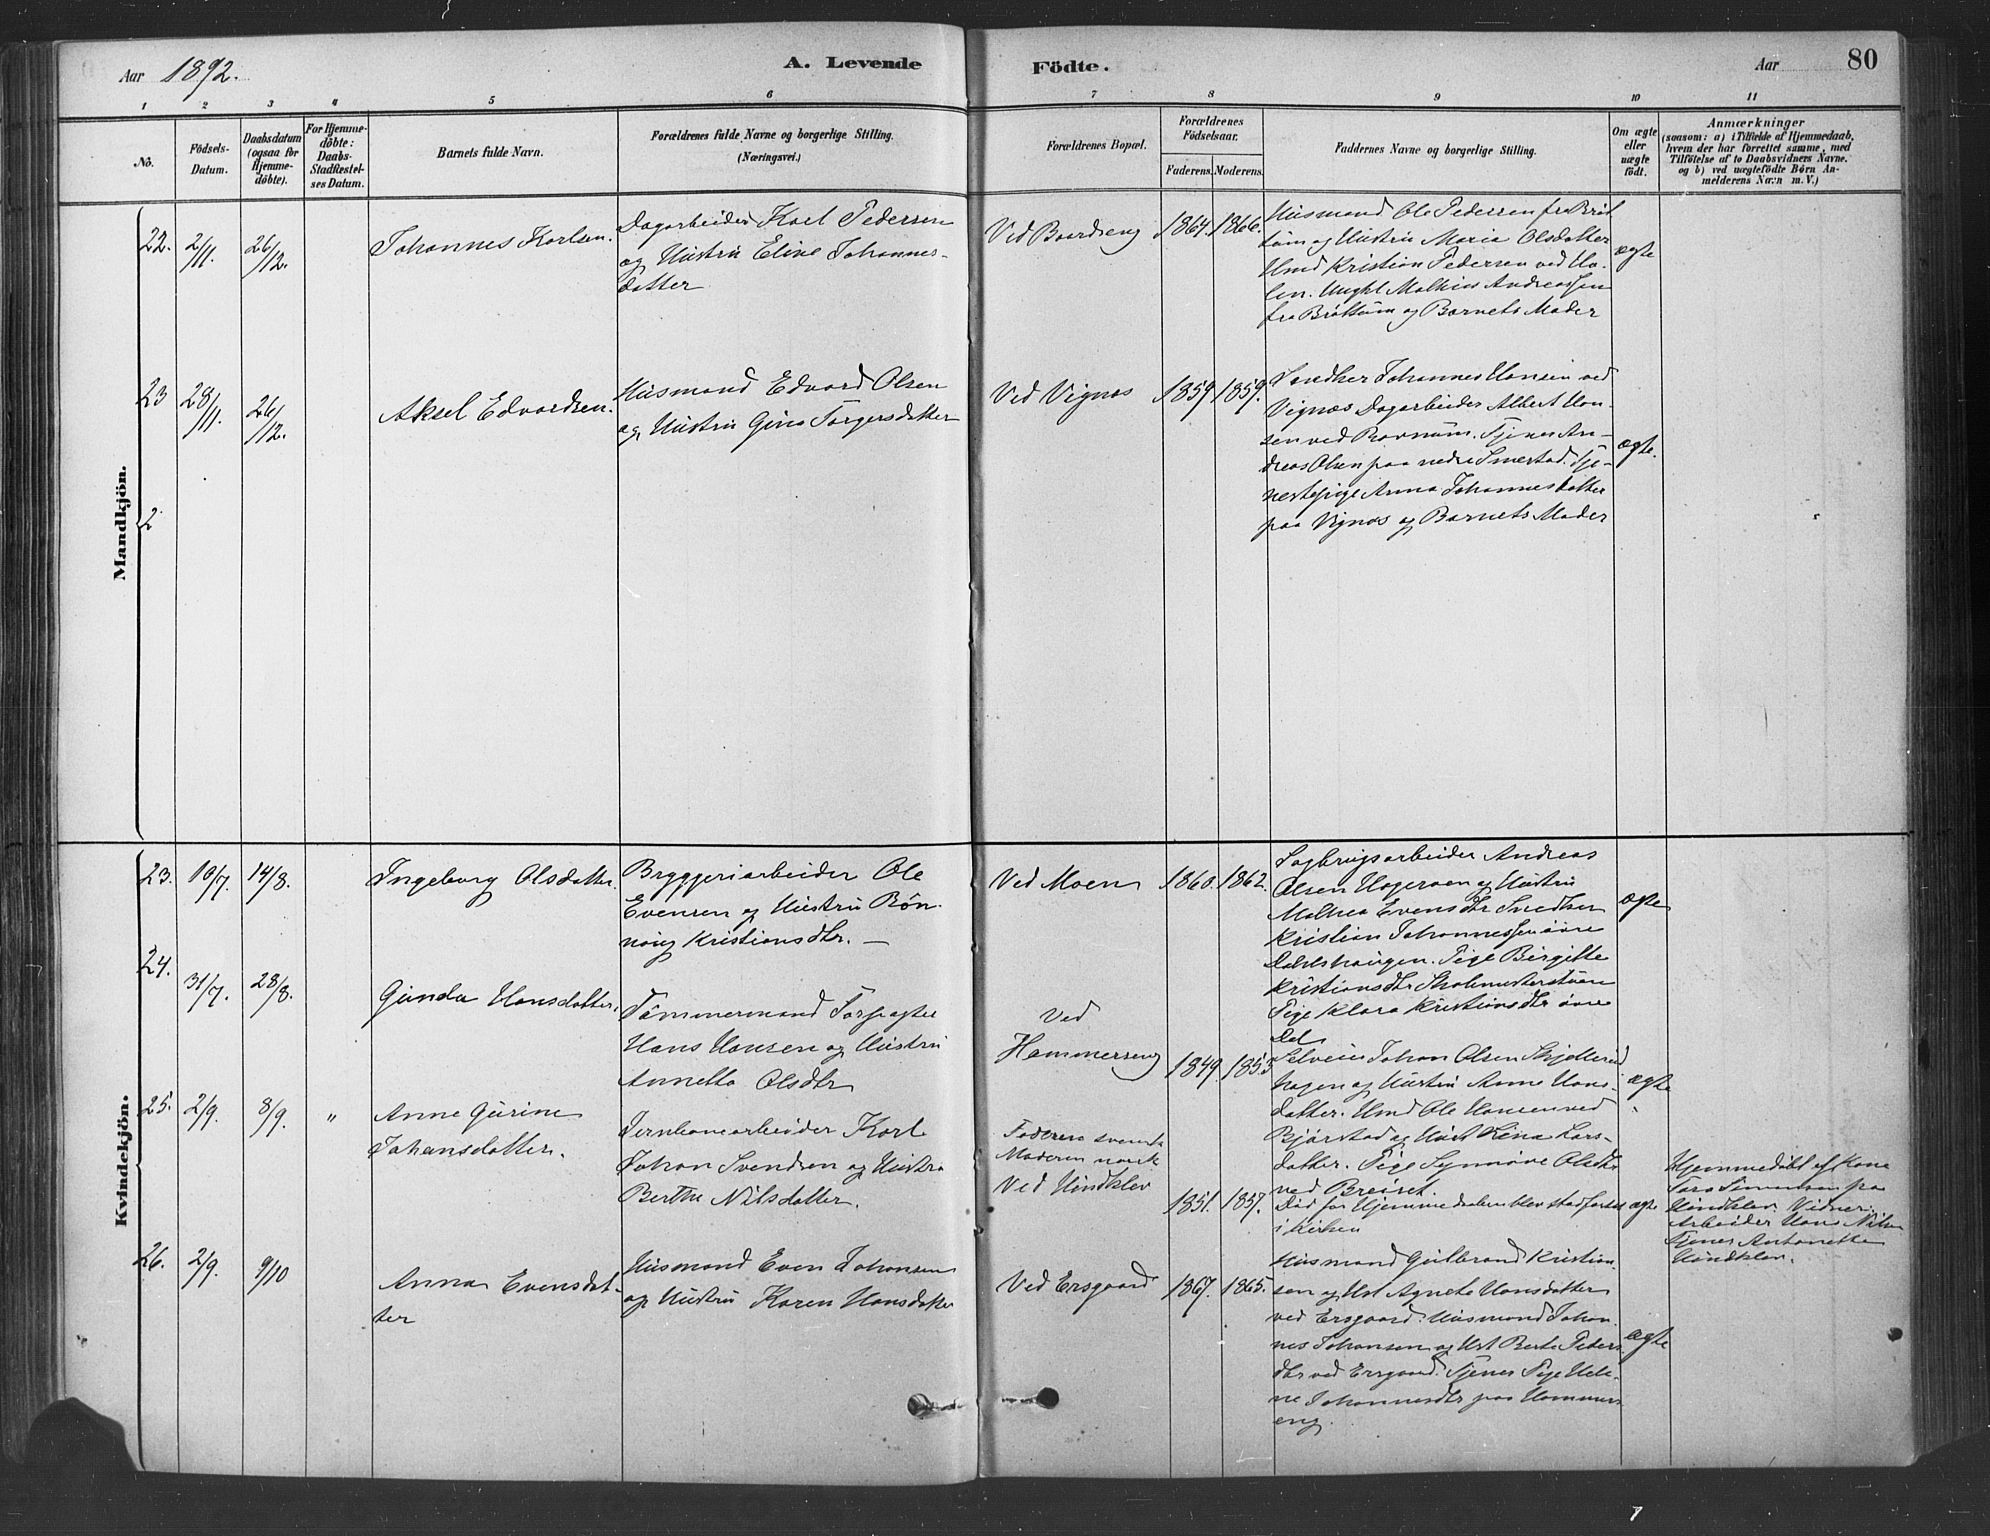 Aar 1892.
A. Levende
Födte.
Aar
80
1 2 3 4 5 6 7 8 9 10 11
No.
Födsels-
Datum.
Daabsdatum
(ogsaa for
Hjemme-
döbte).
For Hjemme-
döbte:
Daabs-
Stadfæstel-
ses Datum.
Barnets fulde Navn.
Forældrenes fulde Navne og borgerlige Stilling.
(Næringsvei.)
Forældrenes Bopæl.
Forældrenes
Födselsaar.
Faderens. Moderens.
Faddernes Navne og borgerlige Stilling.
Om ægte
eller
uægte
födt.
Anmærkninger
(saasom: a) i Tilfælde af Hjemmedaab,
hvem der har forrettet samme, med
Tilföielse af to Daabsvidners Navne.
og b) ved uægtefödte Börn An-
melderens Navn m. V.)
Mandkjön.
22.
2/11.
26/12.
Johannes Karlsen.
Dagarbeider Karl Pedersen
og Hustru Eline Johannes-
datter
Ved Baardseng
1864.
1866.
Husmand Ole Pedersen fra Bröt
tum og Hustru Maria Olsdatter
Hmd Kristian Pedersen ved Ho-
len. Ungkl Mathias Andreassen
fra Bröttum og Barnets Moder
ægte
23
28/11.
26/12.
Aksel Edvardsen.
Husmand Edvard Olsen
og Hustru Gina Torgersdatter
Ved Vignæs
1859
1859.
Snedker Johannes Hansen ved
Vignæs Dagarbeider Albert Han-
sen ved Ravnum. Tjener An-
dreas Olsen paa nedre Smestad. Tje-
nestepige Anna Johannesdatter
paa Vignæs og Barnets Moder
ægte.
2
Kvindekjön.
23.
10/7.
14/8.
Ingeborg Olsdatter.
Bryggeriarbeider Ole
Evensen og Hustru Rön-
naug Kristiansdtr. —
Ved Moen
1860.
1862.
Sagbrugsarbeider Andreas
Olsen Hageroen og Hustru
Mathea Evensdtr Snedker
Kristian Johannessen övre
Dahlshaugen. Pige Birgitte
Kristiansdtr Skolmesterstuen
Pige Klara Kristiansdtr övre
Dal
ægte
24.
31/7.
28/8.
Gunda Hansdatter.
Tømmermand Forpagter
Hans Hansen og Hustru
Annetta Olsdtr
Ved
Hammerseng
1849.
1853
Selveier Johan Olsen Skjellerud
hagen og Hustru Anne Hans-
datter. Hmd Ole Hansen ved
Bjørstad og Hust Lina Lars-
datter. Pige Synnöve Olsdtr
ved Breiset.
ægte
25.
2/9.
8/9.
"
Anne Gurine
Johansdatter.
Jernbanearbeider Karl
Johan Svendsen og Hustru
Berthe Nilsdatter.
Faderen svensk
Moderen norsk
Ved Hindklev
1851.
1857.
Död för Hjemmedaaben blev stadfæstet
i Kirken
ægte
Hjemmedöbt af Kone
Simensen paa
Hindklev. Vidner.
Arbeider Hans Nilsen
Tjener Antonette
Hindklev.
26.
2/9.
9/10
Anna Evensdat-
ter
Husmand Even Johansen
og Hustru Karen Hansdatter
Ved Ersgaard
1867.
1865.
Husmand Gulbrand Kristian-
sen og Hst Agnete Hansdatter
ved Ersgaard. Husmand Johan-
nes Johansen og Hst Berte Peders-
dtr ved Ersgaard. Tjener Pige Hele-
ne Johannesdtr paa Hammers-
eng.
ægte